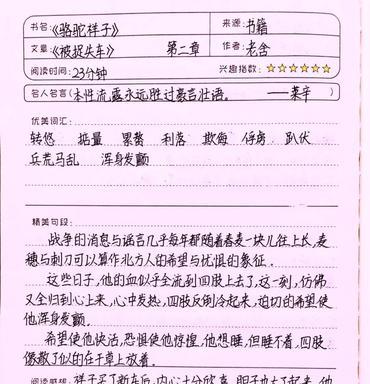 书名:《骆驼祥子》 来源:书籍
文章:《被捉失车》 第二章 作者:老舍
阅读时间:23分钟 兴趣指数:★★★★★★
名人名言(本性流露永远胜过豪言壮语。 ——莱辛 )
优美词汇:
转悠 掂量 累赘 利落 欺侮 俘虏 趴伏
兵荒马乱 浑身发颤
精美句段:
战争的消息与谣言几乎每年都随着春麦一块儿往上长,麦
穗与刺刀可以算作北方人的希望与忧惧的象征.
这些日子,他的血似乎全流到四肢上去了,这一刻,仿佛
又全归到心上来,心中发热,四肢反倒冷起来,迫切的希望使
他浑身发颤.
希望使他快活,恐惧使他惊惶,他想睡,但睡不着,四肢
像散了似的在干草上放着.
阅读感想:祥子买了新车后,内心十分欣喜,胆子也大了起来,他